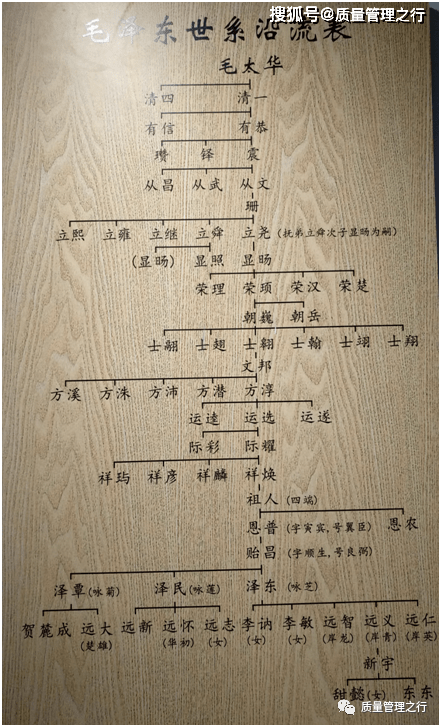 搜狐号@质量管理之行
毛泽东世系沿流表
毛太华
清四 清一
有信 有恭
瓒 铎 震
从昌 从武 从文
珊
立熙 立雍 立继 立舜 立尧 (抚弟立舜次子显旸为嗣)
(显旸) 显照 显旸
荣理 荣顼 荣汉 荣楚
朝巍 朝岳
士翩 士翅 士翱 士翰 士翊 士翔
文邦
方溪 方洙 方沛 方潜 方淳
运逵 运选 运遂
际彩 际耀
祥玙 祥彦 祥麟 祥焕
祖人 (四端)
恩普 (字寅宾,号翼臣) 恩农
贻昌 (字顺生,号良弼)
泽覃 (咏菊) 泽民 (咏莲) 泽东 (咏芝)
贺麓成 远大 远新 远怀 远志 李讷 李敏 远智 远义 远仁
(楚雄) (华初) (女) (女) (女) (岸龙) (岸青) (岸英)
新宇
甜懿(女) 东东
质量管理之行